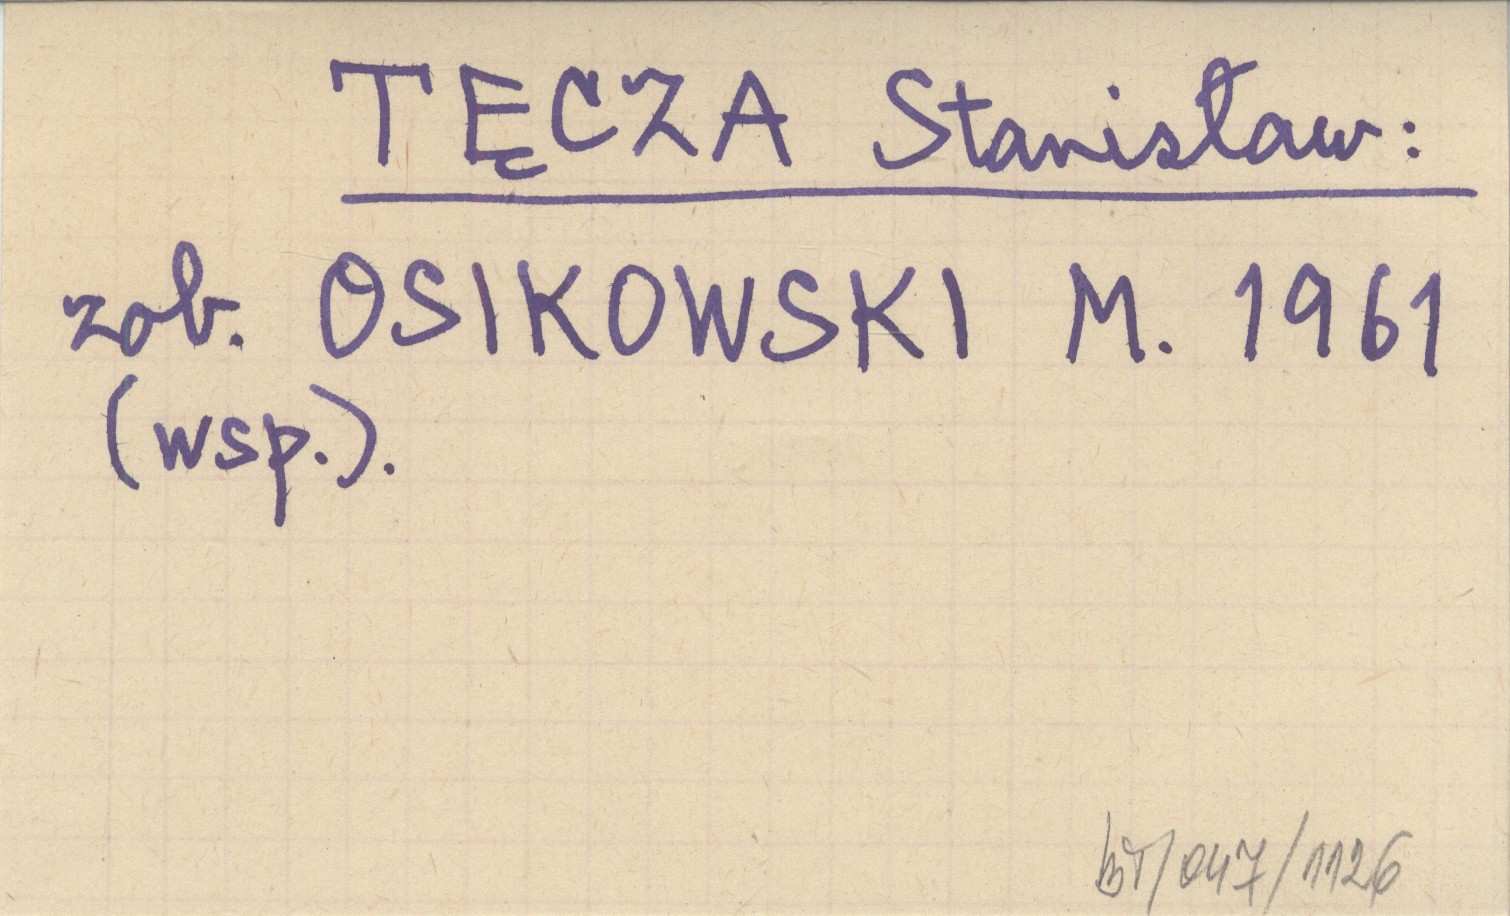 TĘCZA Stanisław:
zob. OSIKOWSKI M. 1961
(wsp.).
BT/047/1126